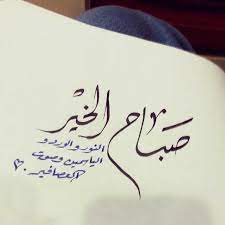 صباح الخير
النور والورد و
الياسمين وصوت
العصافير .